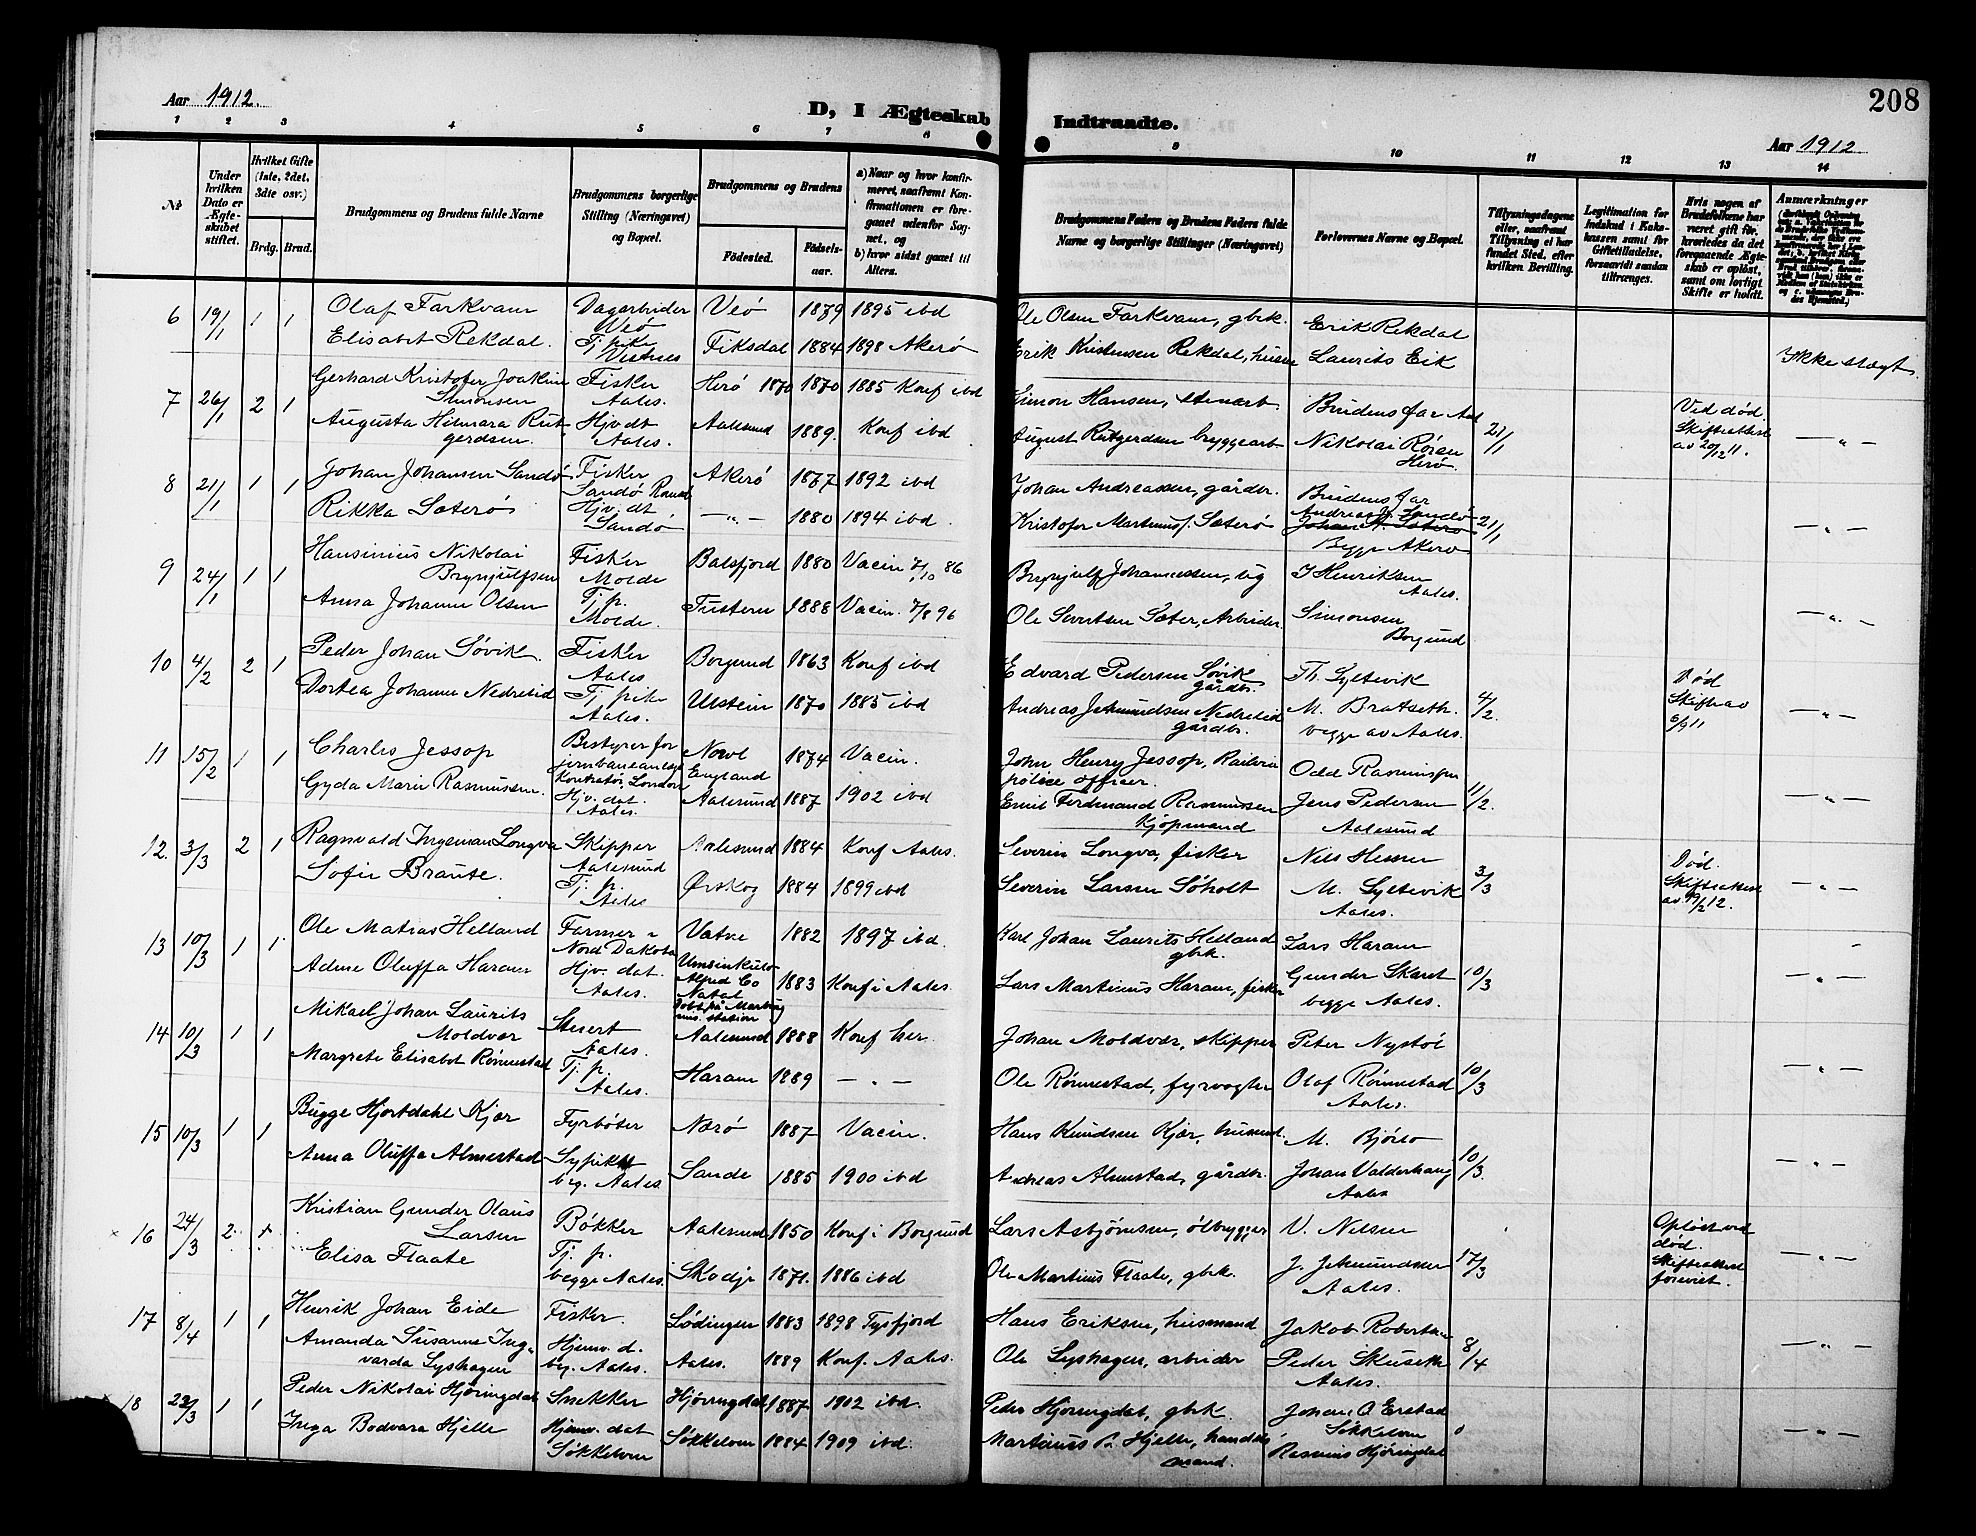 Aar 1912.
D, I Ægteskab
Indtraadte.
208
Aar 1912
1 2 3 4 5 6 7 8
9 10 11 12 13 14
№
Under hvilken Dato er Ægteskabet stiftet.
Hvilket Gifte (1ste, 2det, 3dte osv.)
Brdg. Brud.
Brudgommens og Brudens fulde Navne
Brudgommens borgerlige Stilling (Næringsvei) og Bopæl.
Brudgommens og Brudens
Fødested.
Fødselsaar.
a) Naar og hvor konfirmeret, saafremt Konfirmationen er foregaaet udenfor Sognet, og
b) hvor sidst gaaet til Alters.
Brudgommens Faders og Brudens Faders fulde Navne og borgerlige Stillinger (Næringsvei)
Forlovernes Navne og Bopæl.
Tillysningsdagene eller, saafremt Tillysning ei har fundet Sted, efter hvilken Bevilling.
Legitimation for Indskud i Enkekassen samt for Giftetilladelse, forsaavidt saadan tiltrænges.
Hvis nogen af Brudefolkene har været gift før, hvorledes da det foregaaende Ægteskab er opløst, samt om lovligt Skifte er holdt.
Anmærkninger
6 19/1 1 1 Olaf Farkvam Dagarbeider Veø Veø 1879 1895 ibd Ole Olsen Farkvam, gbrk. Erik Rekdal
Elisabet Rekdal. Tj pike Vestnes Fiksdal 1884 1898 Akerø Erik Kristensen Rekdal, husm Laurits Eik Ikke slægt.
7 26/1 2 1 Gerhard Kristofer Joakim Simonsen Fisker Aales. Herø 1870 1870 1885 Konf ibd Simon Hansen, stenarb. Brudens far Aal 21/1 Ved død. Skifteattest av 20/12 11.
Augusta Hilmara Rutgerdsen. Hjv dt Aales. Aalesund 1889. Konf ibd August Rutgerdsen bryggearb Nikolai Røren Herø. — " —
8 21/1 1 1 Johan Johansen Sandø Fisker Sandø Akerø 1877 1892 ibd Johan Andreassen, gårdbr. Brudens far
Rikka Sæterø Hjv. dt Sandø — " — 1880 1894 ibd. Kristofer Martinus Sæterø Andreas J. Sandø Johan A. Sæterø Begge Akerø 21/1 — " —
9 24/1 1 1 Hansinius Nikolai Brynjulfsen Fisker Molde Balsfjord 1880 Vacin 7/10 86 Brynjulf Johannessen, lig J Henriksen Aales.
Anna Johanne Olsen Tj p. Molde. Tustern 1888 Vacin. 7/8 96 Ole Severtsen Sæter, Arbeider. Simonsen Borgund — " —
10 4/2 2 1 Peder Johan Søvik. Fisker Aales Borgund 1863 Konf ibd Edvard Pedersen Søvik gårdbr. Th. Syltevik 4/2. Død Skifte av 6/9 11
Dortea Johanne Nedrelid Tj pike Aales. Ulstein 1870 1885 ibd Andreas Jetmundsen Nedrelid gårdbr. M. Bratseth. begge av Aales. — " —
11 15/2 1 1 Charles Jessop Bestyrer for jernbaneanlegs Kontrator, London England 1874 Vacin. John Henry Jessop, Railway police officer Odd Rasmussen 11/2.
Gyda Marie Rasmussen. Hjv. dat. Aales. Aalesund 1887 1902 ibd Emil Ferdinand Rasmussen Kjøpmand Jens Pedersen Aalesund — " —
12. 3/3 2 1 Ragnvald Ingeman Longva Skipper Aalesund Aalesund 1884 Konf Aales. Severin Longva, fisker Nils Hessen 3/3 Død. Skifteattest av 19/2 12.
Sofie Brause. Tj. p. Aales Ørskog 1884 1899 ibd Severin Larsen Søholt M. Syltevik Aales. — " —
13 10/3 1 1 Ole Matias Helland Farmer i Nord Dakota Vatne 1882 1897 ibd. Karl Johan Laurits Helland gbrk. Lars Haram 10/3
Adine Oluffa Haram Hjv. dat. Aales. Umsinkulo Alfred Co Natal station 1883 Konf i Aales. Lars Martinus Haram, fisker Gunder Skaret begge Aales. — " —
14 10/3 1 1 Mikael Johan Laurits Moldvær Stuert Aales. Aalesund 1888 Konf her. Johan Moldvær, skipper Peter Nystøl 10/3
Margrete Elisabet Rønnestad Tj. p. Aales. Haram 1889 — " — Ole Rønnestad, fyrvogter Olaf Rønnestad Aales. — " —
15 10/3 1 1 Bugge Hjortdahl Kjær Fyrbøter Nærø 1887 Vacin. Hans Knudsen Kjær, husmd. M. Bjørlo 10/3
Anna Oluffa Almestad Sypike beg. Aales Sande 1885 1900 ibd Andreas Almestad, gårdbr. Johan Valderhaug Aales — " —
16 24/3 2 Kristian Gunder Olaus Larsen Bøkker Aalesund 1850 Konf i Borgund Lars Asbjørnsen, ølbrygger V. Nilsen 17/3 Opløst ved død. Skifteattest forevist.
Elisa Flaate Tj. p. begge Aales. Skodje 1871. 1886 ibd Ole Martinus Flaate, gbrk. J. Jetmundsen Aales. — " —
17 8/4 1 1 Henrik Johan Eide Fisker. Lødingen 1883 1898 Tysfjord Hans Eriksen, husmand Jakob Robertsen 8/4
Amanda Susanne Ingvarda Lyshagen Hjemv. d. bg. Aales. Aales. 1889 Konf. Aales. Ole Lyshagen, arbeider Peder Skuseth Aales. — " —
18 22/3 1 1 Peder Nikolai Hjøringdal Snekker Hjøringdal 1887 1902 ibd. Peder Hjøringdal, gbrk. Johan O. Erstad Søkkelven
Inga Bodvara Hjelle Hjemv. dat Søkkelven Søkkelven 1884 1909 ibd. Martinus P. Hjelle, handelsmand. Rasmus Hjøringdal — " —